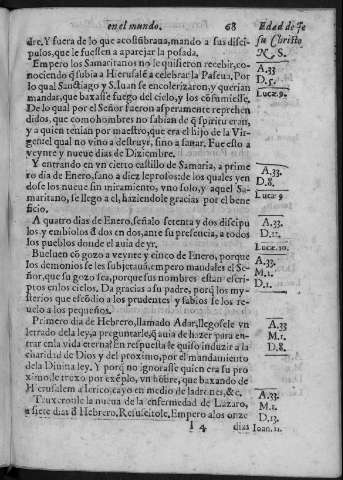 en el mundo. 68 Edad de Je
su Christo
N. S.
dre. Y fuera de lo que acostũbraua, mando a sus disci
pulos, que le fuessen a aparejar la posada.
Empero los Samaritanos no le quisieron recebir, co-
nociendo q̃ subia a Hierusalẽ a celebrar la Pascua. Por
lo qual Sanctiago y S. Iuan se encolerizaron, y querian
mandar, que baxasse fuego del cielo, y los cõsumiesse.
De lo qual por el Señor fueron asperamente reprehen
didos, que como hombres no sabian de q̃ spiritu eran,
y a quien tenian por maestro, que era el hijo de la Vir-
gen: el qual no vino a destruyr, sino a sanar. Fue esto a
veynte y nueue dias de Diziembre.
A.33
D.5.
Lucæ.9.
Y entrando en vn cierto castillo de Samaria, a prime
ro dia de Enero, sano a diez leprosos: de los quales ven
dose los nueue sin miramiento, vno solo, y aquel Sa-
maritano, se llego a el, haziendole gracias por el bene
ficio.
A.33.
D.8.
Lucæ 9
A quatro dias de Enero, señalo setenta y dos discipu
los y embiolos d̃ dos en dos, ante su presencia, a todos
los pueblos donde el auia de yr.
A.33.
D.11.
Lucæ.10.
Bueluen cõ gozo a veynte y cinco de Enero, porque
los demonios se les subjetauã, empero mandales el Se-
ñor, que su gozo sea, porque sus nombres estan escri-
ptos en los cielos. Da gracias a su padre, porq̃ los my-
sterios que escõdio a los prudentes y sabios se los re-
uelo a los pequeños.
A.33.
M.1.
D.1.
Primero dia de Hebrero, llamado Adar, llegosele vn
letrado de la ley, a preguntarle, q̃ auia de hazer para en-
trar en la vida eternal: en respuesta le quiso induzir a la
charidad de Dios y del proximo, por el mandamiento
de la Diuina ley. Y porq̃ no ignorasse quien era su pro
ximo, le truxo por exẽplo, vn hõbre, que baxando de
Hierusalem a Ierico, cayo en medio de ladrones, &c.
A.33
M.1.
D.8.
Truxeronle la nueua de la enfermedad de Lazaro,
a siete dias d̃ Hebrero. Resuscitole. Empero a los onze
A.33.
M.1.
D.13.
Ioan.11.
I 4 dias